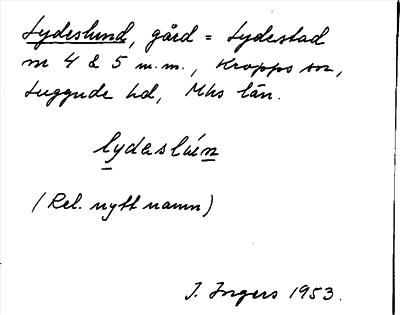 Lydeslund, gård = Lydestad
nr 4 & 5 m.m., Kropps sn,
Luggude hd, Mhs län.
lydeslúẹn
(Rel. nytt namn)
I. Ingers 1953.